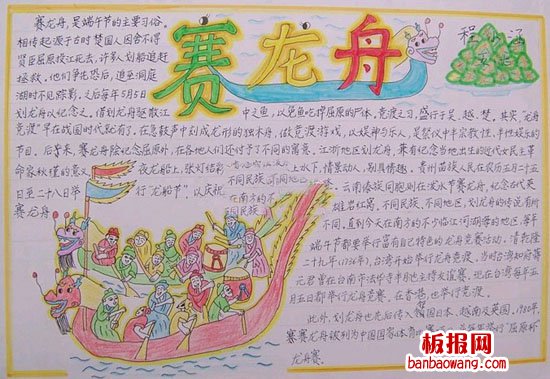 赛龙舟
赛龙舟,是端午节的主要习俗。
相传起源于古时楚国人因舍不得
贤臣屈原投江死去,许多人划船追赶
拯救。他们争先恐后,追至洞庭
湖时不见踪影,之后每年5月5日
划龙舟以纪念之。借划龙舟驱散江
中之鱼,以免鱼吃掉屈原的尸体。竞渡之习,盛行于吴、越、楚。其实,"龙舟
竞渡"早在战国时代就有了。在急鼓声中划成龙形的独木舟,做竞渡游戏,以娱神与乐人,是祭仪中半宗教性、半娱乐性的
节目。后来,赛龙舟除纪念屈原外,在各地人们还付予了不同的寓意。江浙地区划龙舟,兼有纪念当地出生的近代女民主革
命家秋瑾的意义
夜龙船上,张灯结彩
水下,情景动人,别具情趣。贵州苗族人民在农历五月二十五
日至二十八日举
行"龙船节",以庆祝
云南傣族同胞则在泼水节赛龙舟,纪念古代英
雄岩红窝。不同民族、不同地区,划龙舟的传说有所
不同。直到今天在南方的不少临江河湖海的地区,每年
端午节都要举行富有自己特色的龙舟竞赛活动。清乾隆
二十九年(1736年),台湾开始举行龙舟竞渡。
现在台湾每年五
月五日都举行龙舟竞赛。在香港,也举行竞渡。
此外,划龙舟也先后传入邻国日本、越南及英国。1980年,
赛龙舟被列为中国国家体育
"屈原杯"
龙舟赛。
板报网
banbaowang.com